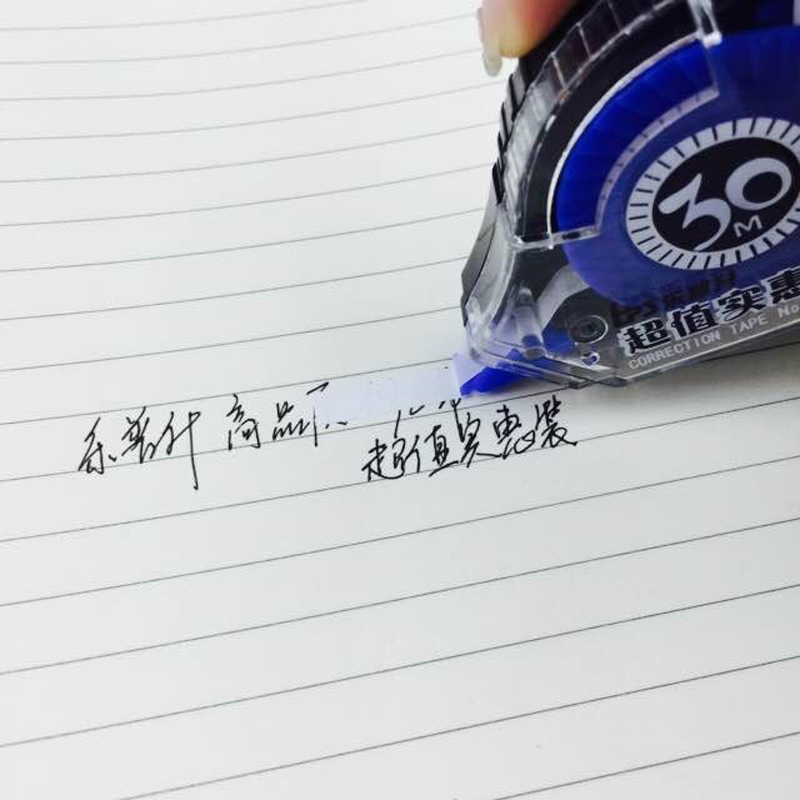 30
M
乐普升
超值实惠
CORRECTION TAPE No
乐普升 高品
超值实惠装